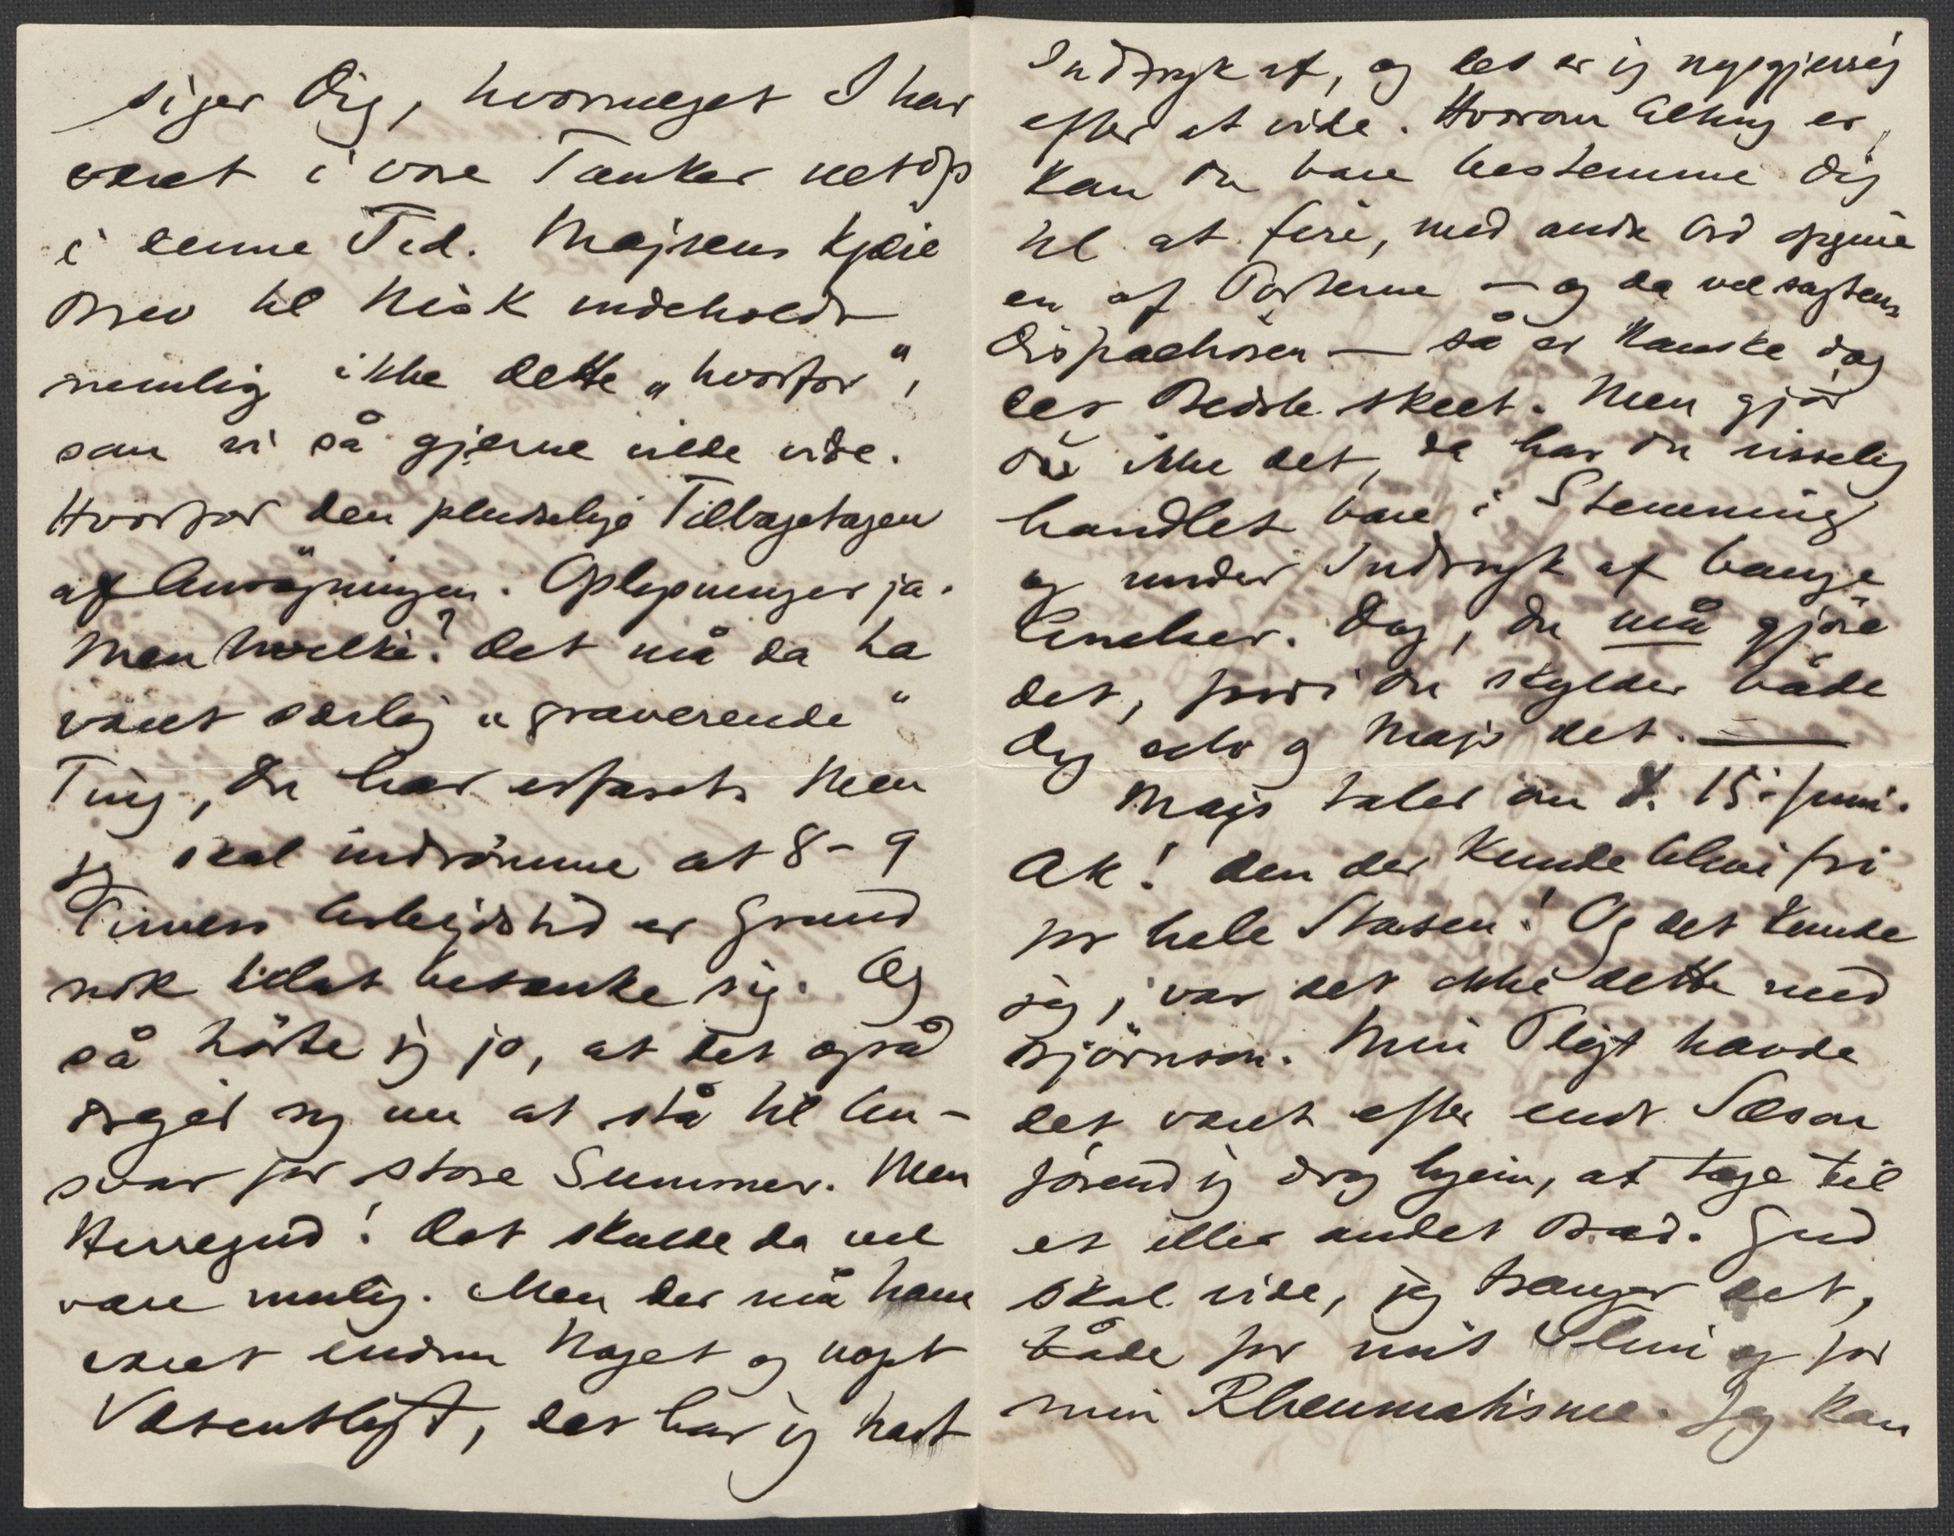 siger Dig, hvormeget I har
været i vore Tanker netop
i denne Tid. Majsens kjære
Brev til Nisk indeholdt
nemlig ikke dette „hvorfor",
som vi så gjerne vilde vide.
Hvorfor den pludselige Tilbagetagen
af Ansøgningen. Oplysninger ja.
Men hvilke? Det må da ha
været særlig „graverende"
Ting, Du har erfaret. Men
jeg skal indrømme at 8-9
Timers Arbejdstid er Grund
nok til at betænke sig. Og
så hørte jeg jo, at det også
drejed sig om at stå til An-
svar for store Summer. Men
Herregud! Det skulde da vel
være mulig. Men der må have
været endnu Noget og noget
Væsentligt, det har jeg havt
Indtryk af, og det er jeg nysgjerrig
efter at vide. Hvorom Alting er,
kan Du bare bestemme Dig
til at fire, med andre Ord opgive
en af Posterne — og da vel sagtens
Dispachøren — så er kanske dog
det Bedste skeet. Men gjør
Du ikke det, da har Du visselig
handlet bare i Stemning
og under Indtryk af bange
Anelser. Dog, Du må gjøre
det, fordi Du skylder både
Dig selv og Majs det. —
Majs taler om d. 15. Juni.
Ak! den der kunde blive fri
for hele Stasen! Og det kunde
jeg, var det ikke dette med
Bjørnson. Min Pligt havde
det været efter endt Sæson
førend jeg drog hjem, at tage til
et eller andet Bad. Gud
skal vide, jeg trænger det,
både for mit Slim og for
min Rheumatisme. Jeg kan